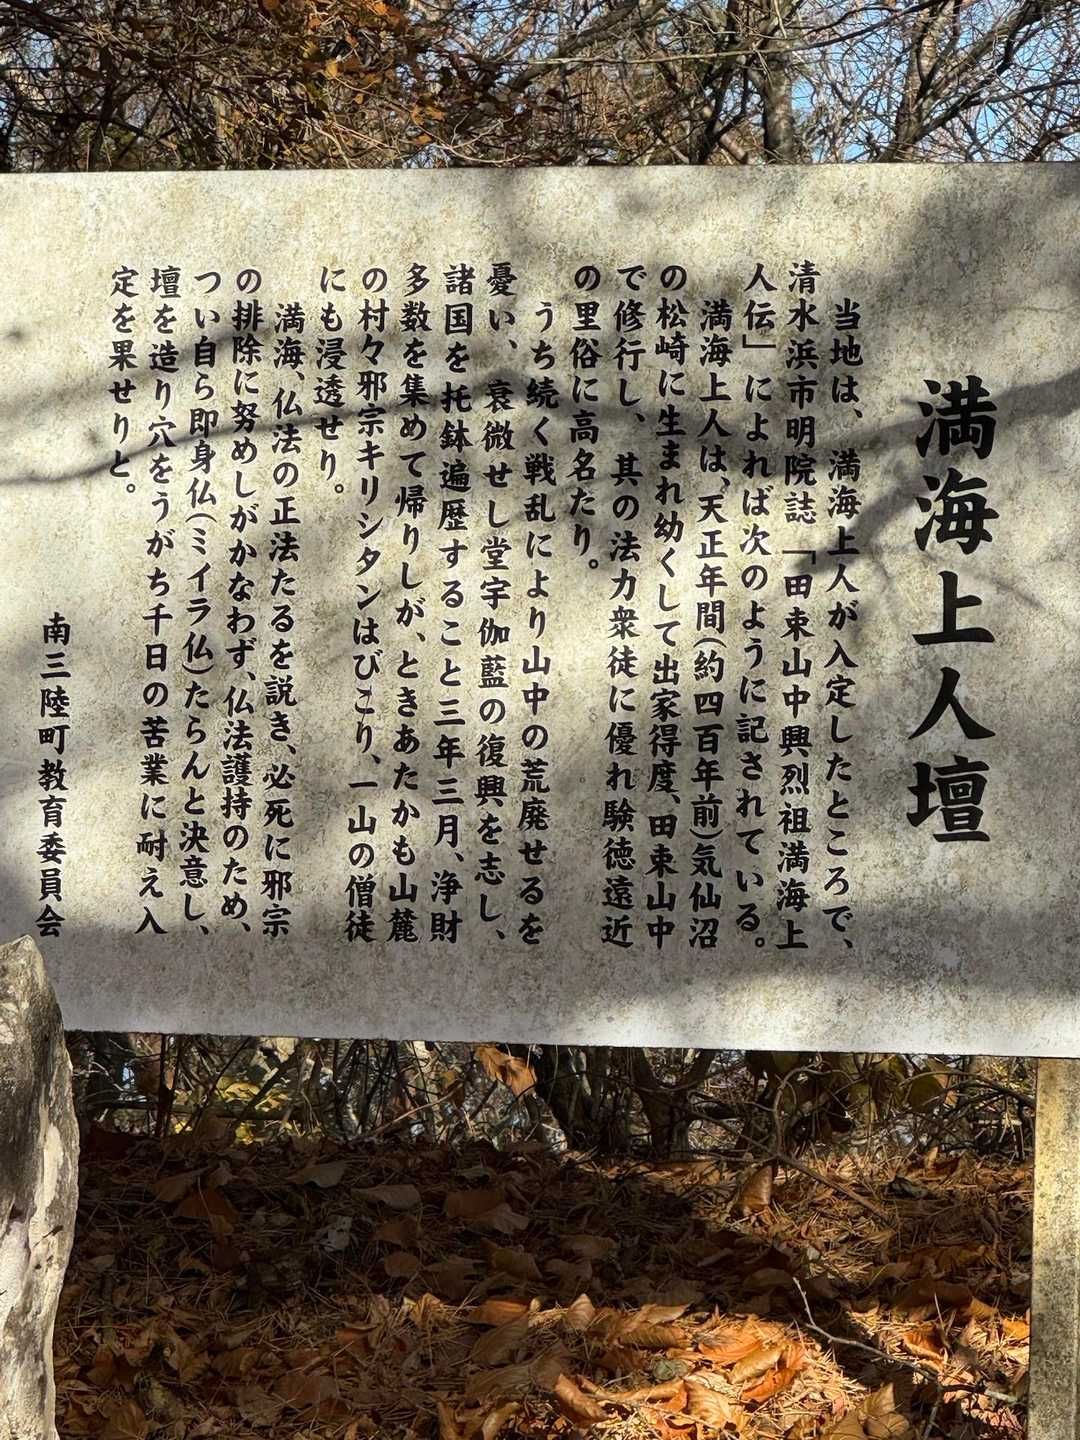 満海上人壇
当地は、満海上人が入定したところで、
清水浜市明院誌「田束山中興烈祖満海上
人伝」によれば次のように記されている。
満海上人は、天正年間(約四百年前)気仙沼
の松崎に生まれ幼くして出家得度、田束山中
で修行し、其の法力衆徒に優れ験徳遠近
の里俗に高名たり。
うち続く戦乱により山中の荒廃せるを
憂い、衰微せし堂宇伽藍の復興を志し、
諸国を托鉢遍歴すること三年三月、浄財
多数を集めて帰りしが、ときあたかも山麓
の村々邪宗キリシタンはびこり、一山の僧徒
にも浸透せり。
満海、仏法の正法たるを説き、必死に邪宗
の排除に努めしがかなわず、仏法護持のため、
つい自ら即身仏(ミイラ仏)たらんと決意し、
壇を造り穴をうがち千日の苦業に耐え入
定を果せりと。
南三陸町教育委員会